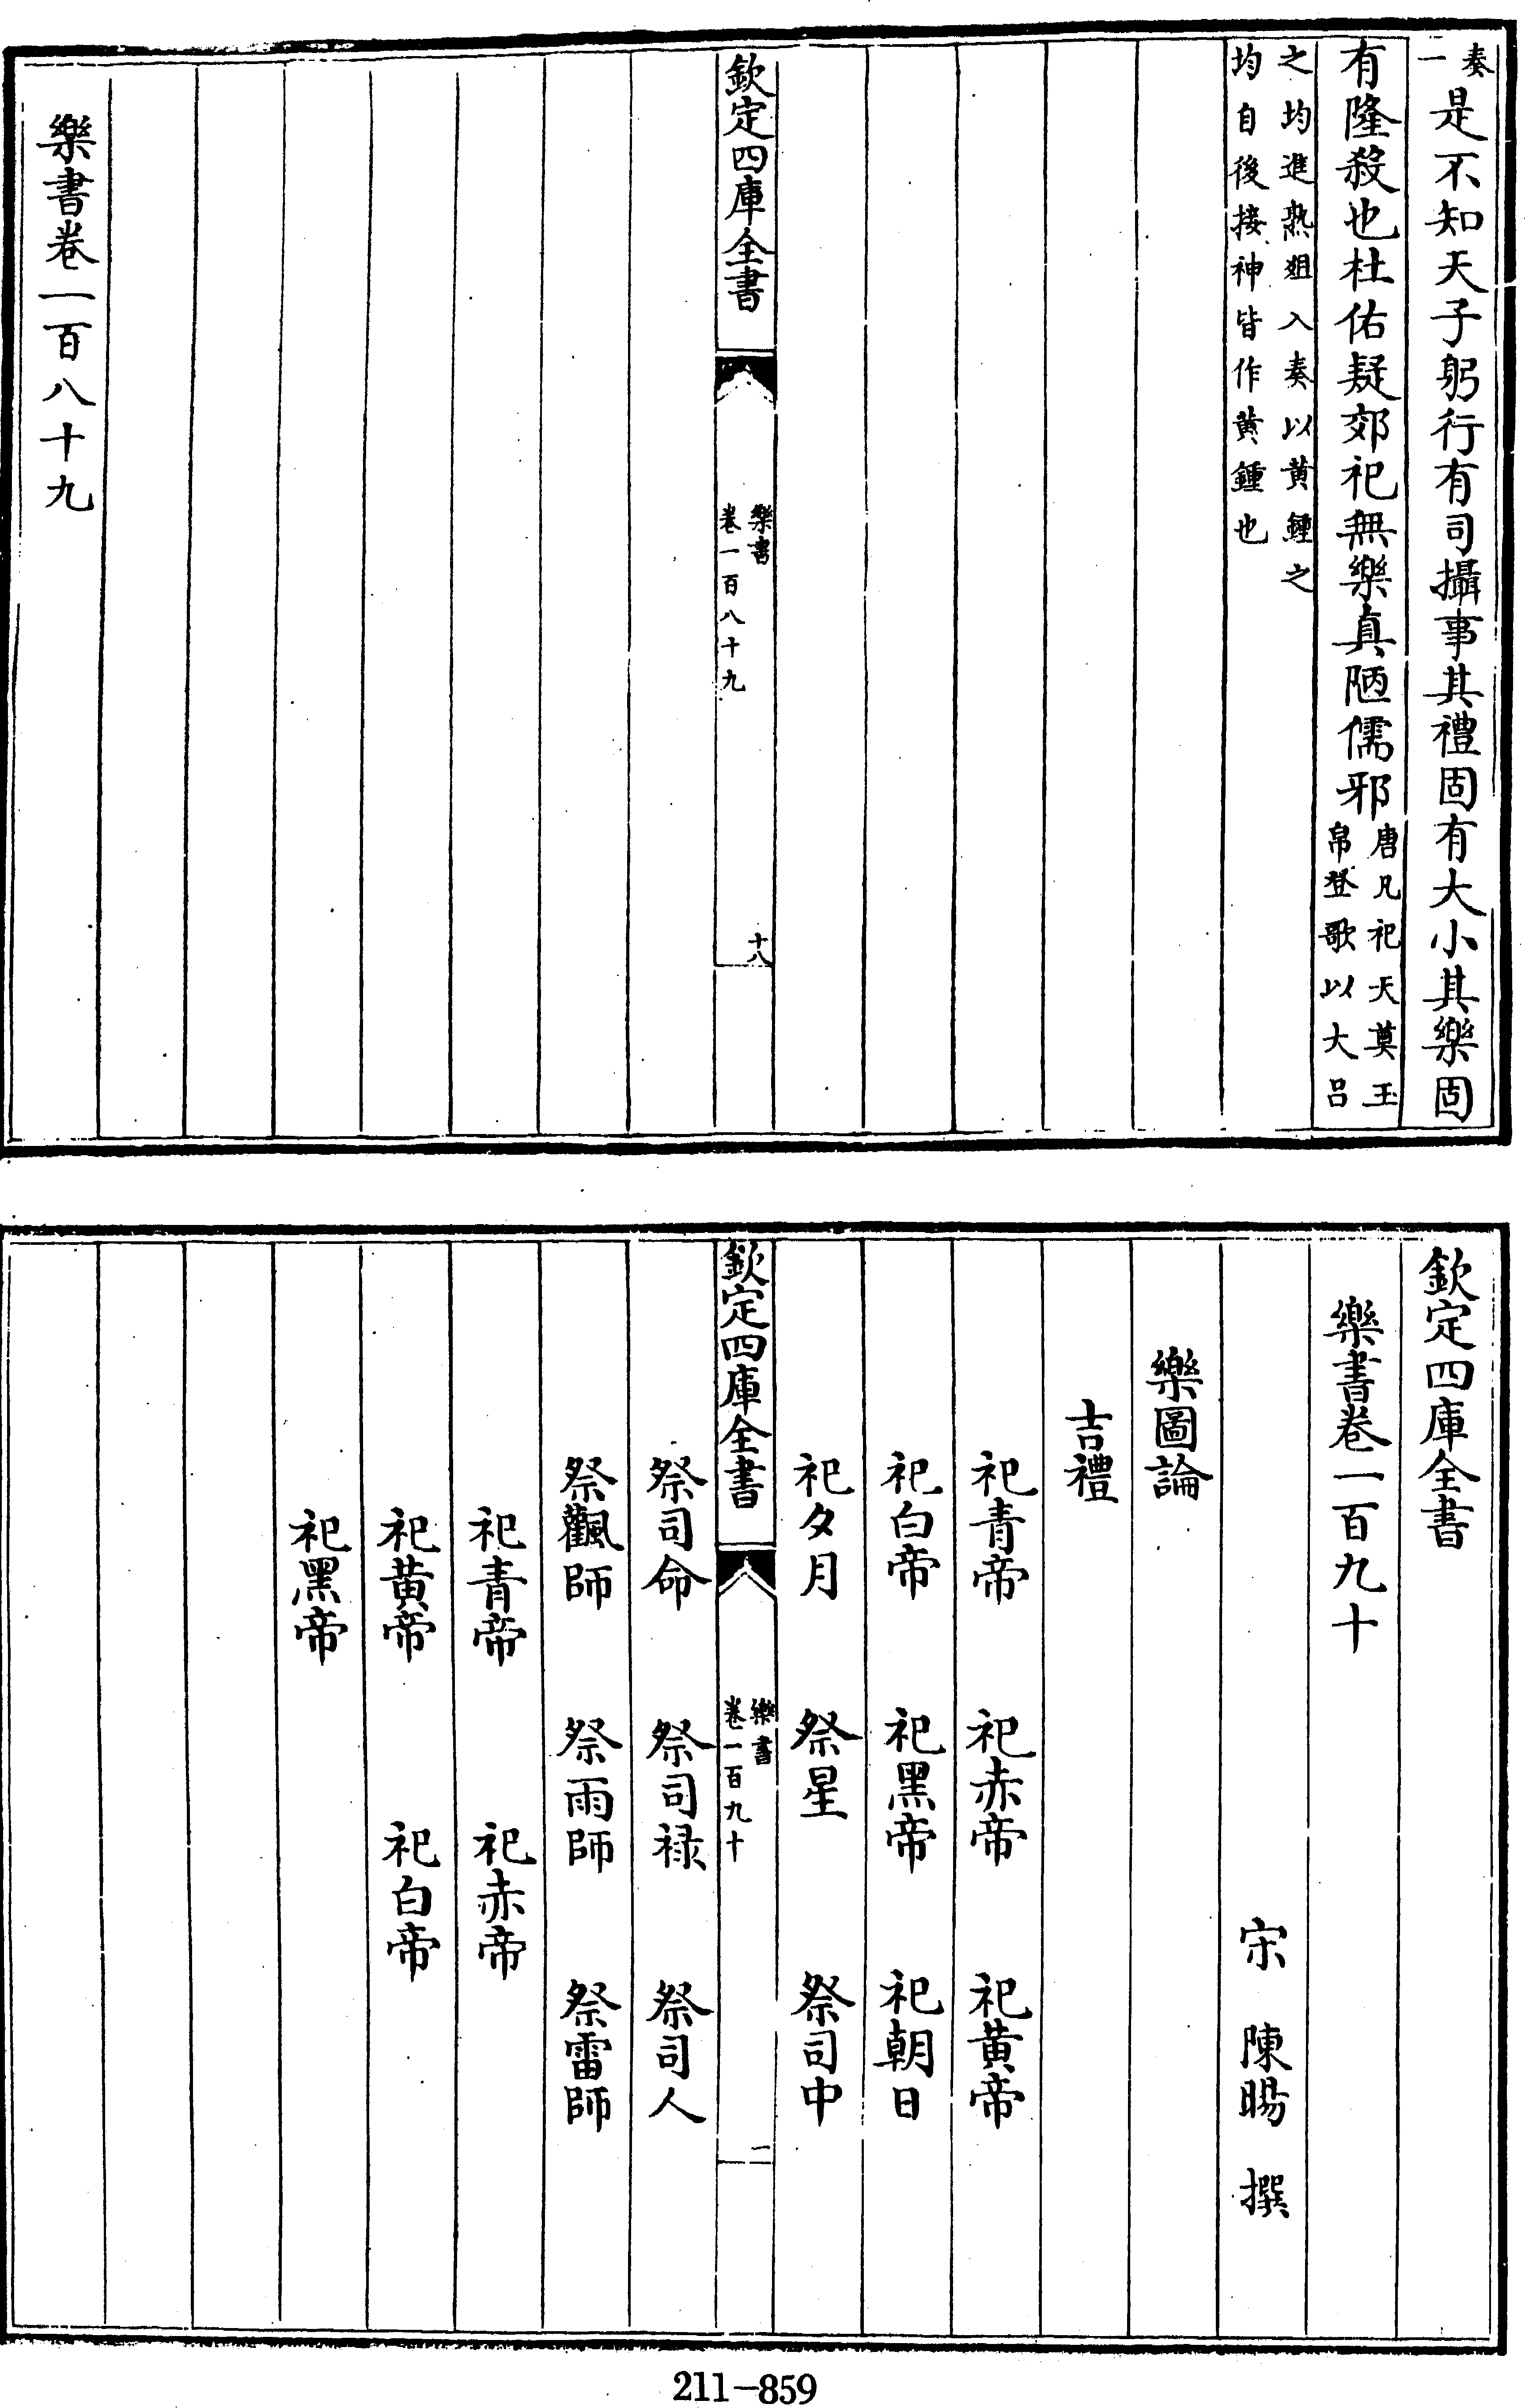 奏一是不知天子躬行有司攝事其禮固有大小其樂固
有隆殺也杜佑疑郊祀無樂真陋儒邪唐凡祀天奠玉帛登歌以大呂
之均進熟俎入奏以黄鍾之均自後接神皆作黄鍾也
欽定四庫全書
樂書
卷一百八十九
十八
樂書卷一百八十九
欽定四庫全書
樂書卷一百九十
宋 陳暘 撰
樂圖論
吉禮
祀青帝 祀赤帝 祀黄帝
祀白帝 祀黑帝 祀朝日
祀夕月 祭星 祭司中
欽定四庫全書
樂書
卷一百九十
一
祭司命 祭司禄 祭司人
祭飌師 祭雨師 祭雷師
祀青帝 祀赤帝
祀黄帝 祀白帝
祀黑帝
211-859